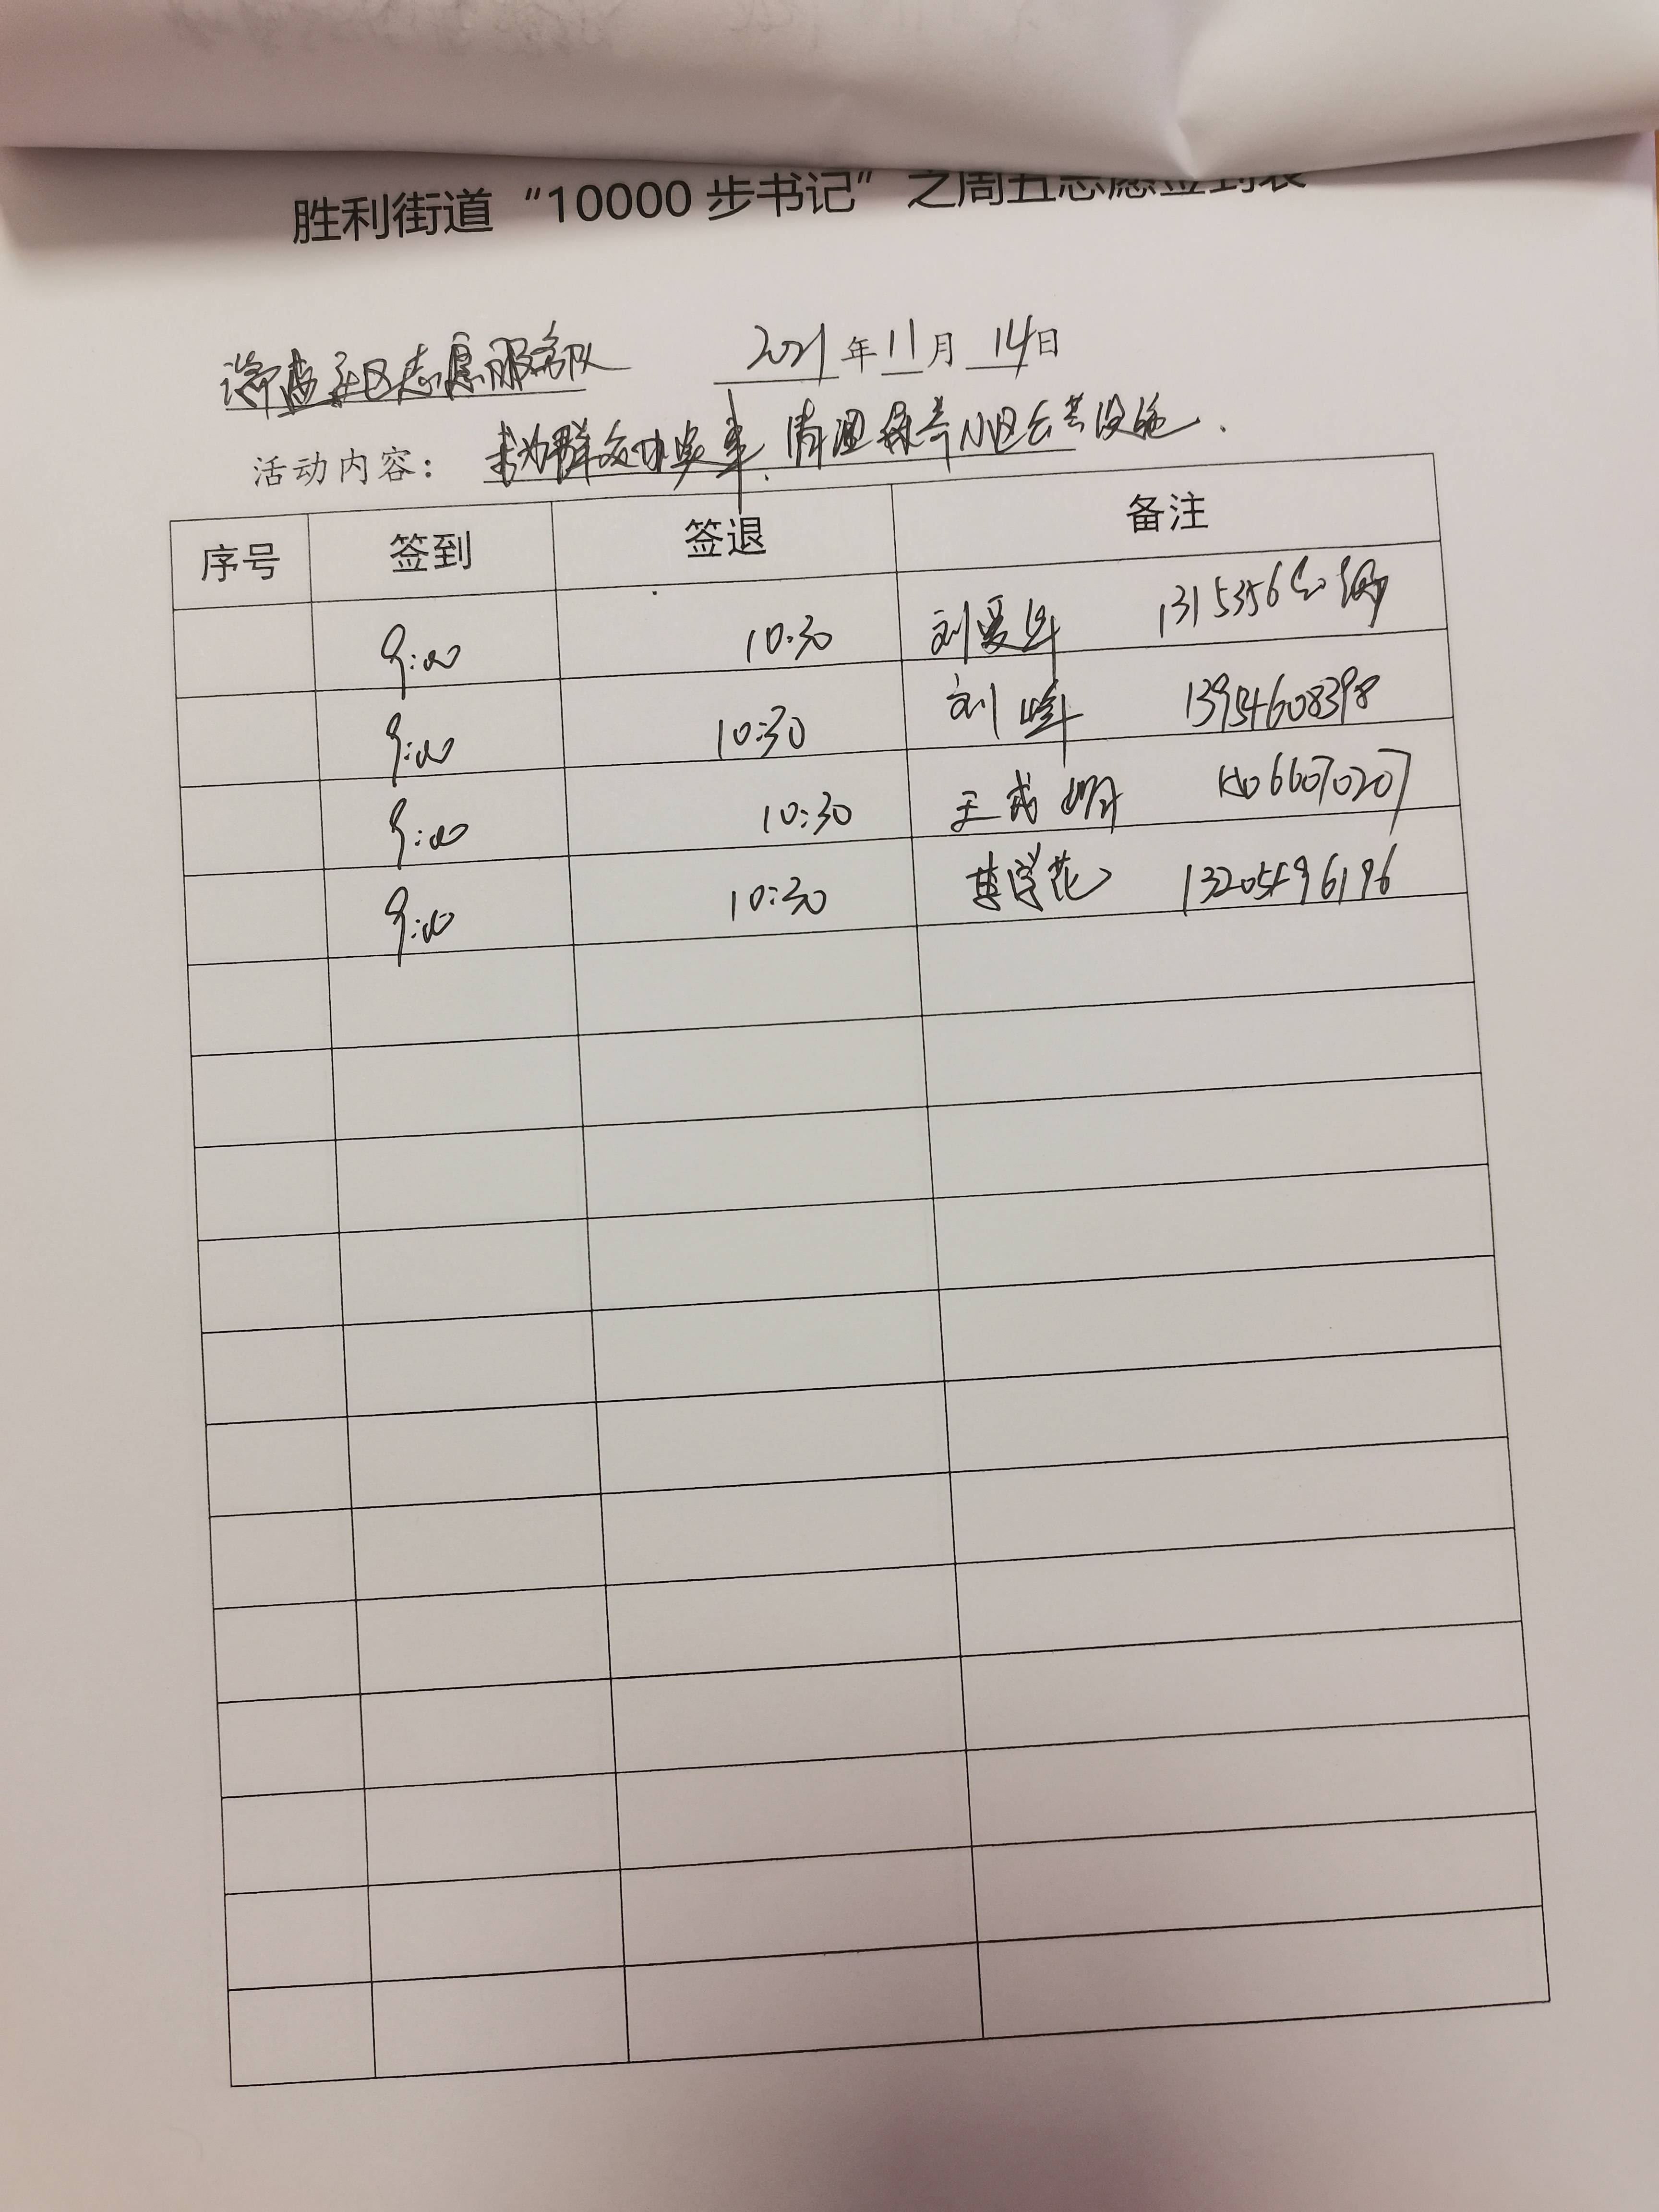 胜利街道“10000 步书记”之周五志愿签到表
社区志愿服务队 2021年11月14日
活动内容： 为群众办实事、清理 小区公共设施.
序号 签到 签退 备注
9:00 10:30 刘爱华
9:00 10:30 刘峰 13954608398
9:00 10:30 王成明
9:00 10:30 李学花 13205496196